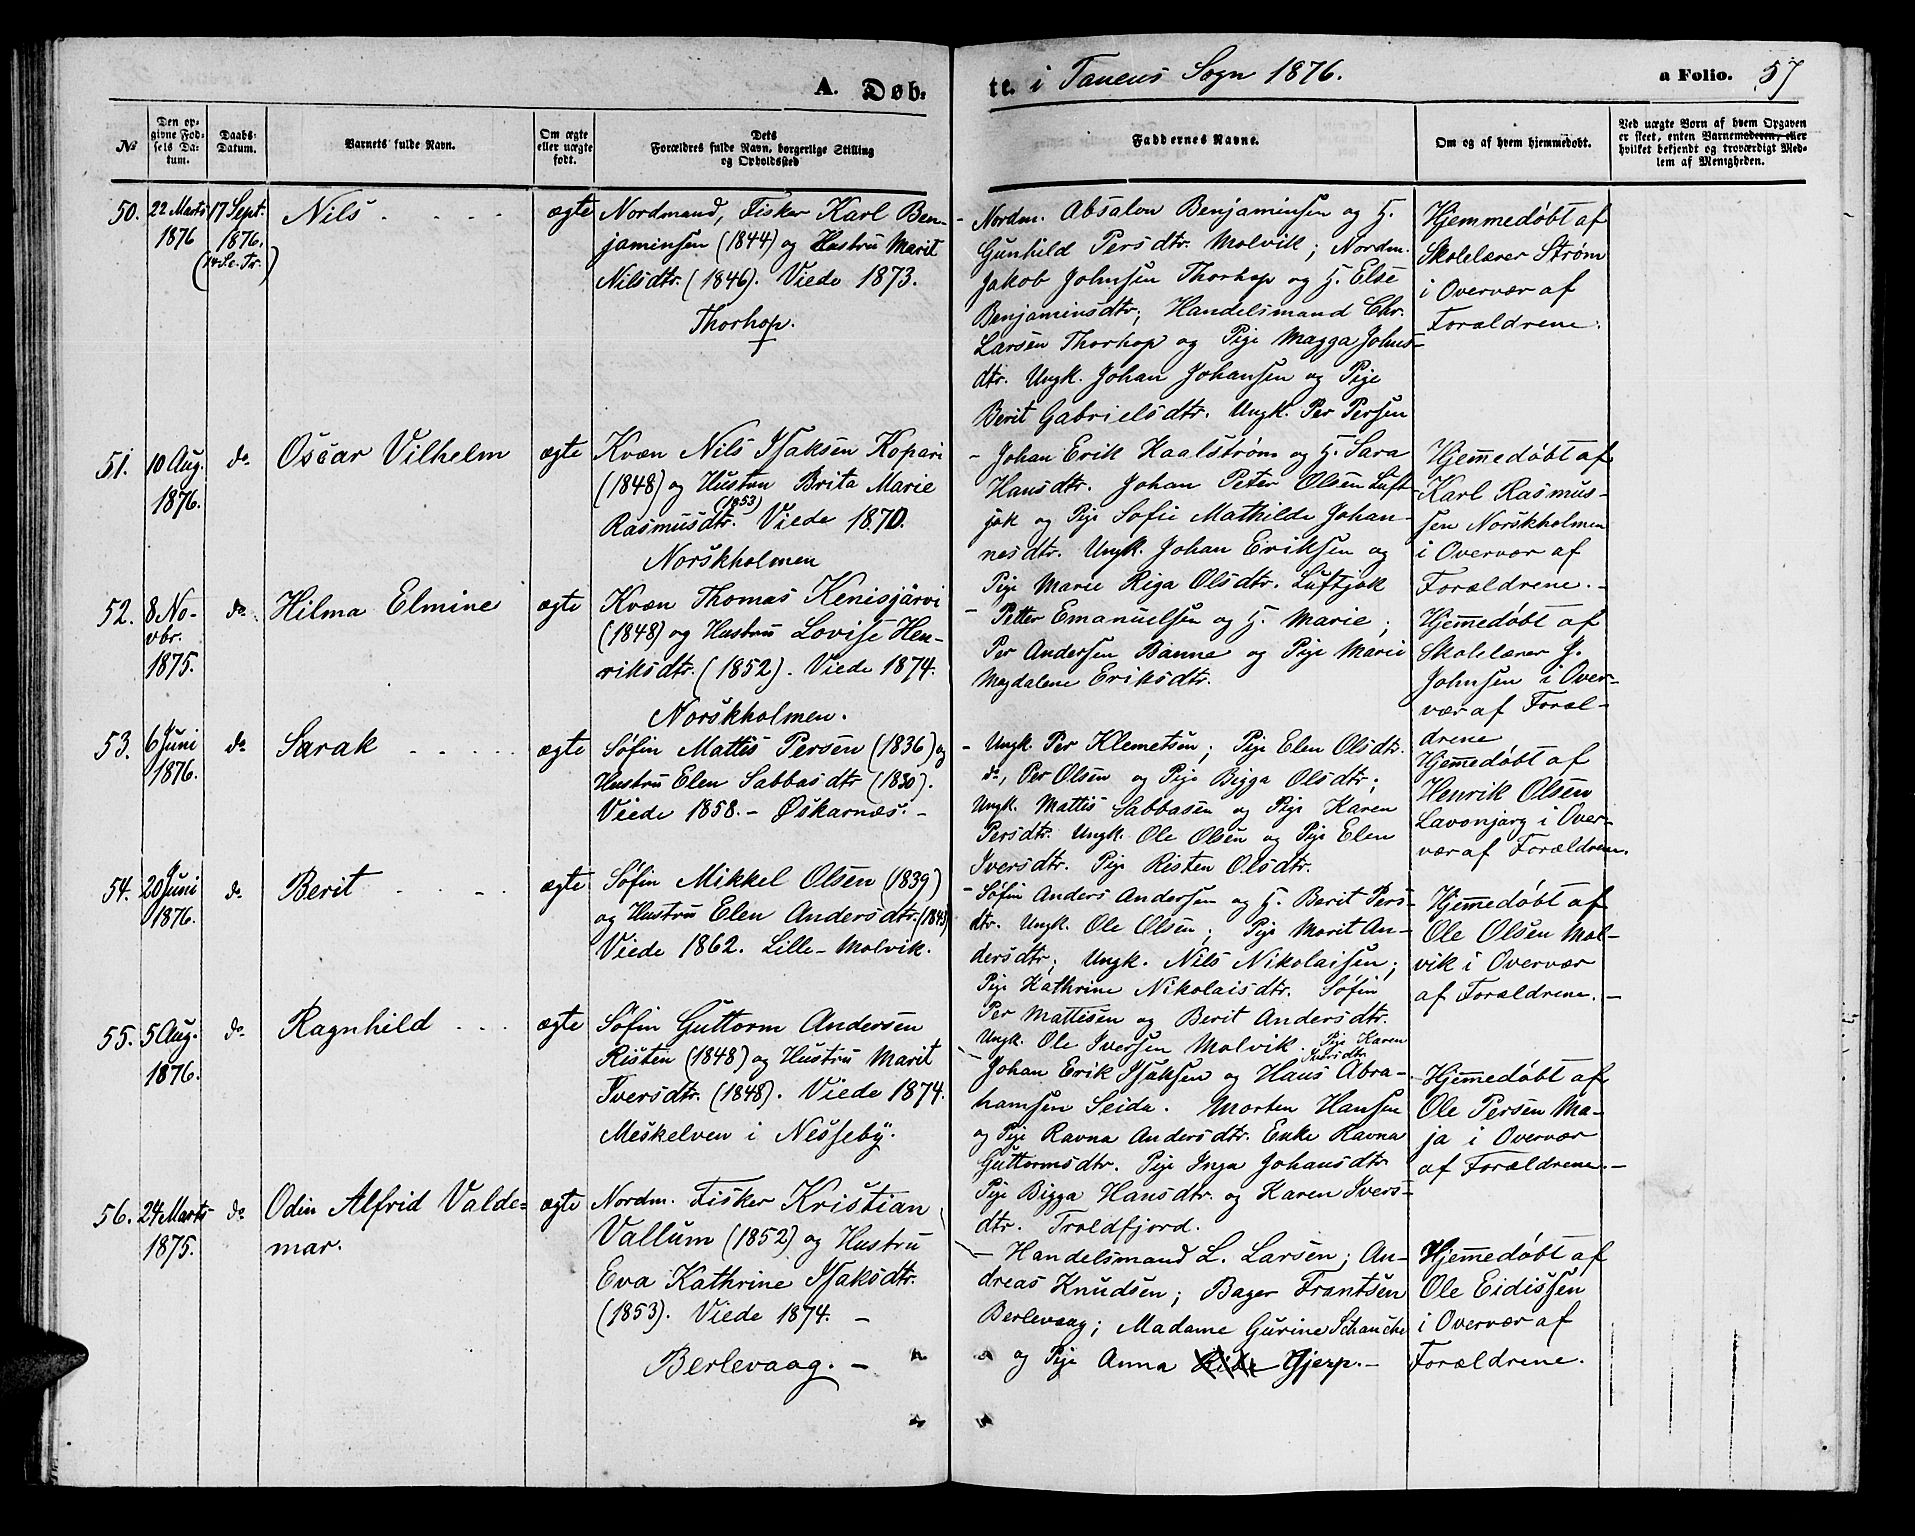 A. Døb.
te. i Tanens Sogn 1876.
a Folio. 57
No
Den opgivne Fødsels Datum.
Daabs-Datum.
Varnets fulde Navn.
Om ægte eller uægte født.
Dets Forældres fulde Navn, borgerlige Stilling og Opholdssted
Faddernes Navne.
Om og af hvem hjemmedøbt.
Ved uægte Børn af hvem Opgaven er skeet, enten Varnemoderen, eller hvilket bekjendt og troværdigt Medlem af Menigheden.
50.
22 Marts
1876
17 Sept.
1876.
(14 S. e. Tr.)
Nils
ægte
Nordmand, Fisker Karl Ben-
jaminsen (1844) og Hustru Marit
Nilsdtr. (1846). Viede 1873.
Thorhop.
Nordm. Absalon Benjaminsen og H.
Gunhild Persdtr. Molvik; Nordm.
Jakob Johnsen Thorhop og H. Else
Benjaminsdtr; Handelsmand Chr.
Larsen Thorhop og Pige Magga Johns-
dtr. Ungk. Johan Johansen og Pige
Berit Gabrielsdtr. Ungk. Per Persen
Hjemmedøbt af
Skolelærer Strøm
i Overvær af
Forældrene.
51.
10 Aug.
1876.
do
Oscar Vilhelm
ægte
Kvæn Nils Isaksen Kopari
(1848) og Hustru Brita Marie
(1853)
Rasmusdtr. Viede 1870.
Norskholmen
- Johan Erik Haalstrøm og H. Sara
Hansdtr. Johan Peter Olsen Luft-
jok og Pige Sofie Mathilde Johan-
nesdtr. Ungk. Johan Eriksen og
Pige Marie Riga Olsdtr. Luftjok
Hjemmedøbt af
Karl Rasmus-
sen Norskholmen
i Overvær af
Forældrene. -
52.
8 No-
vbr.
1875.
do
Hilma Elmine
ægte
Kvæn Thomas Kenisjärvi
(1848) og Hustru Lovise Hen-
riksdtr. (1852). Viede 1874.
Norskholmen.
- Petter Emanuelsen og H. Marie;
Per Andersen Banne og Pige Marie
Magdalene Eriksdtr.
Hjemmedøbt af
Skolelærer J.
Johnsen i Over-
vær af Foræl-
drene
53.
6 Juni
1876.
do
Sarak
ægte
Søfin Mattis Persen (1836) og
Hustru Elen Sabbasdtr (1830).
Viede 1858. - Øskarnæs. -
- Ungk. Per Klemetsen; Pige Elen Olsdtr.
do, Per Olsen og Pige Bigga Olsdtr;
Ungk. Mattis Sabbasen og Pige Karen
Persdtr. Ungk. Ole Olsen og Pige Elen
Iversdtr. Pige Risten Olsdtr.
Hjemmedøbt af
Henrik Olsen
Lavonjarg i Over-
vær af Forældrene.
54.
20 Juni
1876.
do
Berit
ægte
Søfin Mikkel Olsen (1839)
og Hustru Elen Andersdtr. (1843)
Viede 1862. Lille-Molvik.
- Søfin Anders Andersen og H. Berit Pers-
dtr. Ungk. Ole Olsen; Pige Marit An-
dersdtr; Ungk. Nils Nikolaisen;
Pige Kathrine Nikolaisdtr. Søfin
Per Mattisen og Berit Andersdtr.
Ungk. Ole Iversen Molvik. Pige Karen
Iversdtr.
Hjemmedøbt af
Ole Olsen Mol-
vik i Overvær
af Forældrene. -
55.
5 Aug.
1876.
do
Ragnhild
ægte
Søfin Guttorm Andersen
Risten (1848) og Hustru Marit
Iversdtr. (1848). Viede 1874.
Meskelven i Nesseby.
Johan Erik Isaksen og Hans Abra-
hamsen Seida. Morten Hansen
og Pige Ravna Andersdtr. Enke Ravna
Guttormsdtr. Pige Inga Johansdtr
Pige Bigga Hansdtr. og Karen Ivers-
dtr. Troldfjord.
Hjemmedøbt af
Ole Persen Ma-
ja i Overvær
af Forældrene. -
56.
24 Marts
1875.
do
Odin Alfrid Valde-
mar.
ægte
Nordm. Fisker Kristian
Vallum (1852) og Hustru
Eva Kathrine Isaksdtr.
(1853). Viede 1874. -
Berlevaag. -
- Handelsmand L. Larsen; An-
dreas Knudsen; Bager Frantsen
Berlevaag; Madame Gurine Schanche
og Pige Anna Gjerp. -
Hjemmedøbt af
Ole Eidissen
i Overvær af
Forældrene.